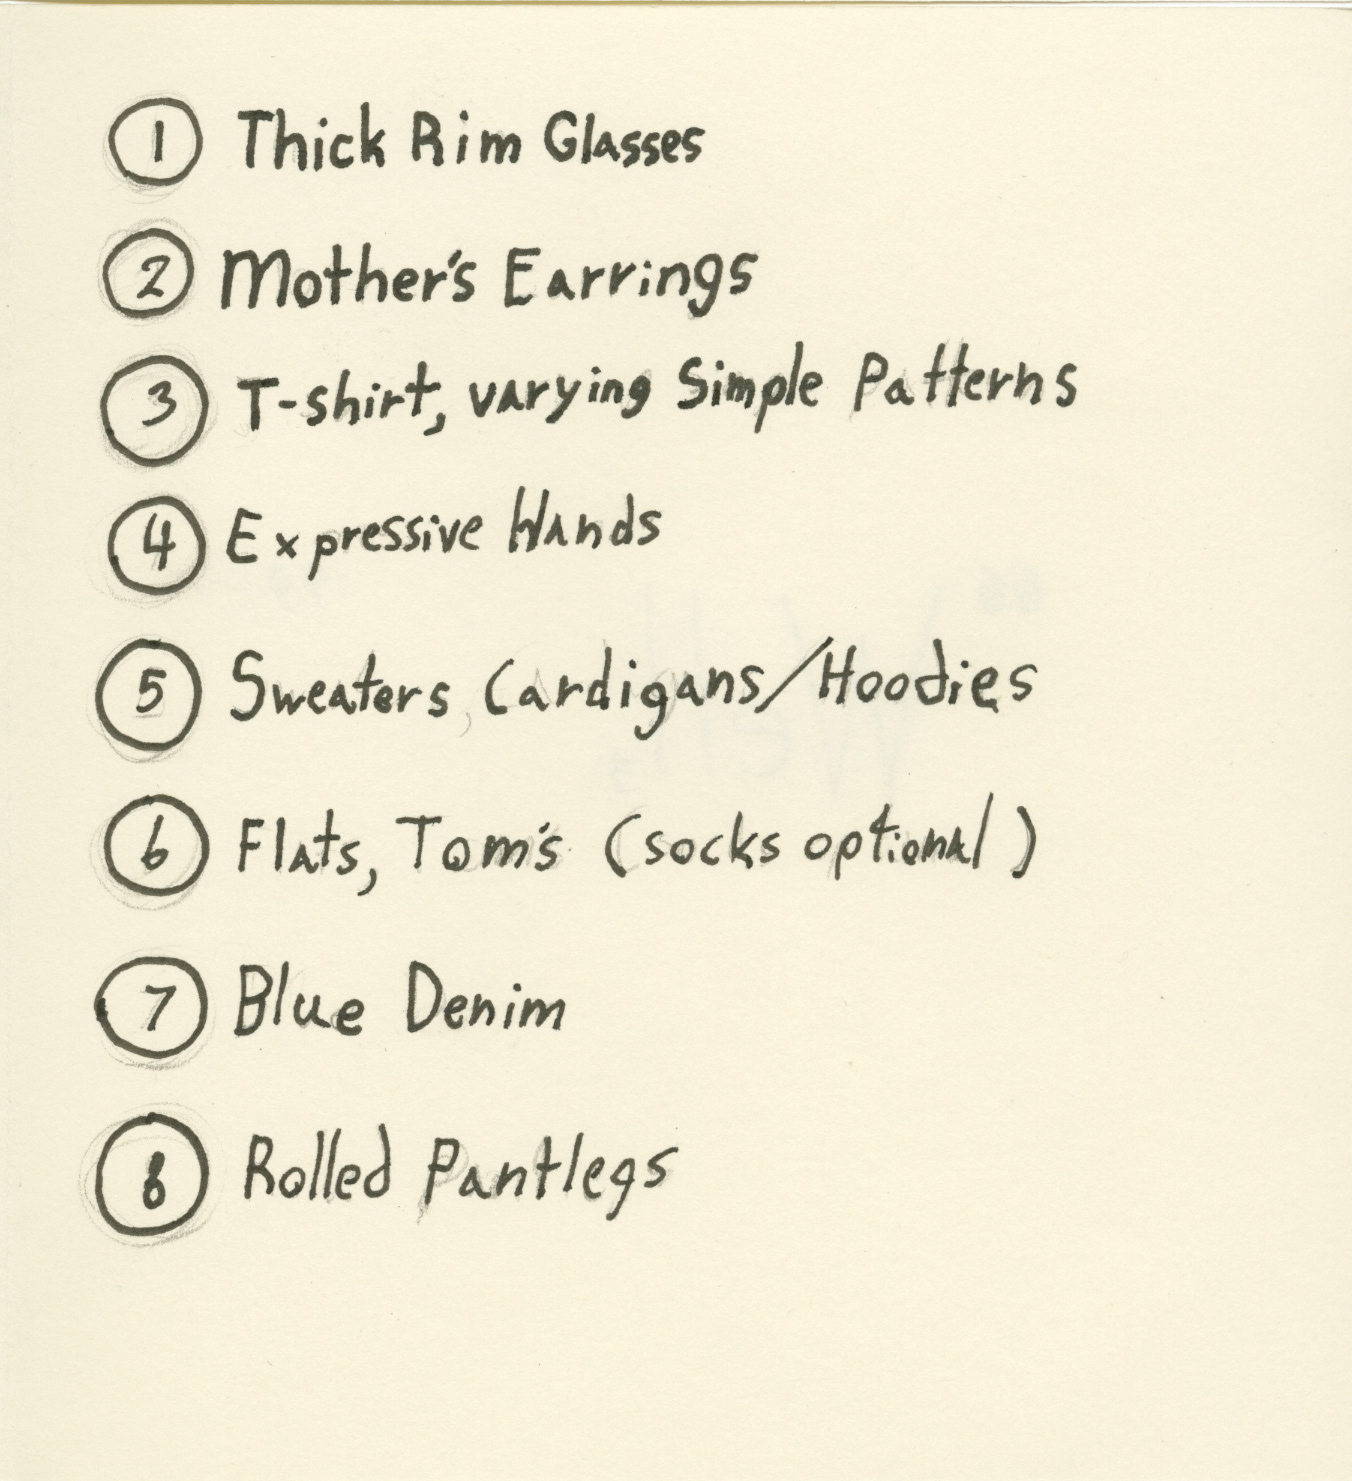 1 Thick Rim Glasses
2 Mother's Earrings
3 T-shirt, varying Simple Patterns
4 Expressive Hands
5 Sweaters Cardigans/Hoodies
6 Flats, Tom's (socks optional)
7 Blue Denim
8 Rolled Pantlegs